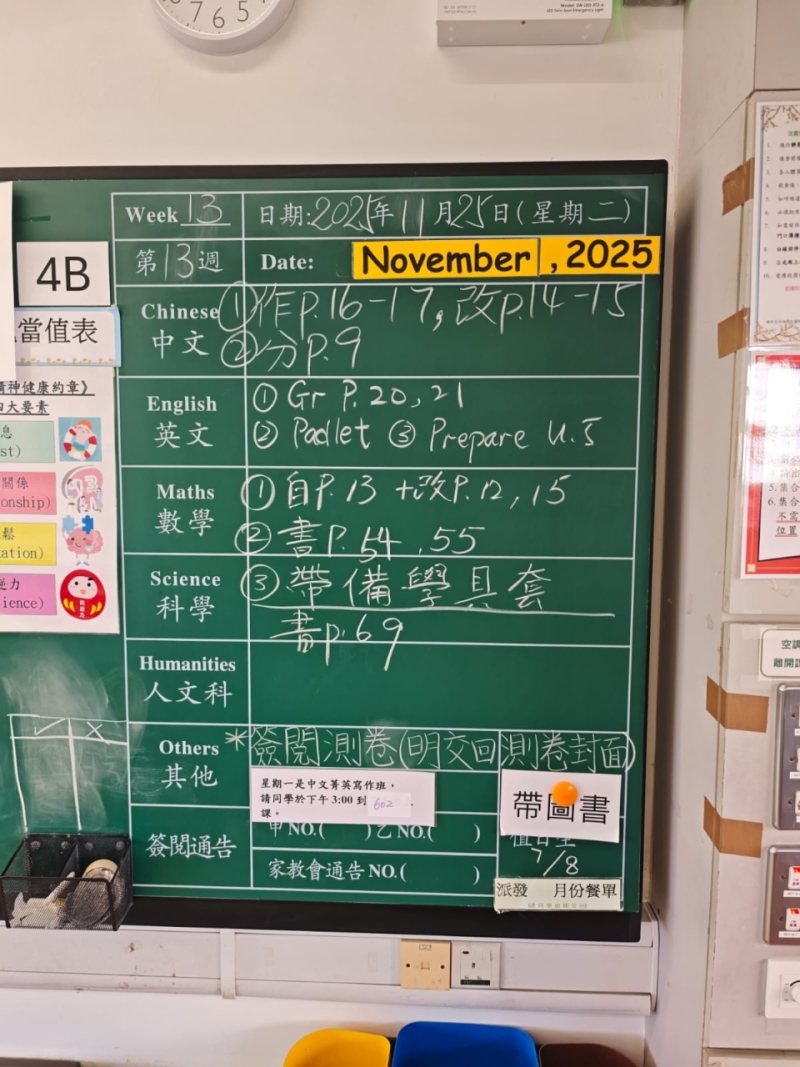 7 6 5
Week 13 日期:2025年11月25日(星期二)
第13週 Date: November , 2025
4B
當值表
Chinese 中文 ①作p.16-17,改p.14-15
②分p.9
English 英文 ① Gr P.20,21
② Padlet ③ Prepare U.5
Maths 數學 ① 自P.13 +改P.12,15
② 書P.54,55
Science 科學 ③ 帶備學具套
書p.69
Humanities 人文科
Others 其他 *簽閱測卷(明交回測卷封面)
星期一是中文菁英寫作班,
請同學於下午 3:00 到 602 .
課。
帶圖書
簽閱通告 甲NO.( )乙NO.( )
7/8
家教會通告NO.( )
派發 月份餐單
精神健康約章》
四大要素
息
關係
鬆
逆力
5. 集合
6. 集合
不需
位置
空調